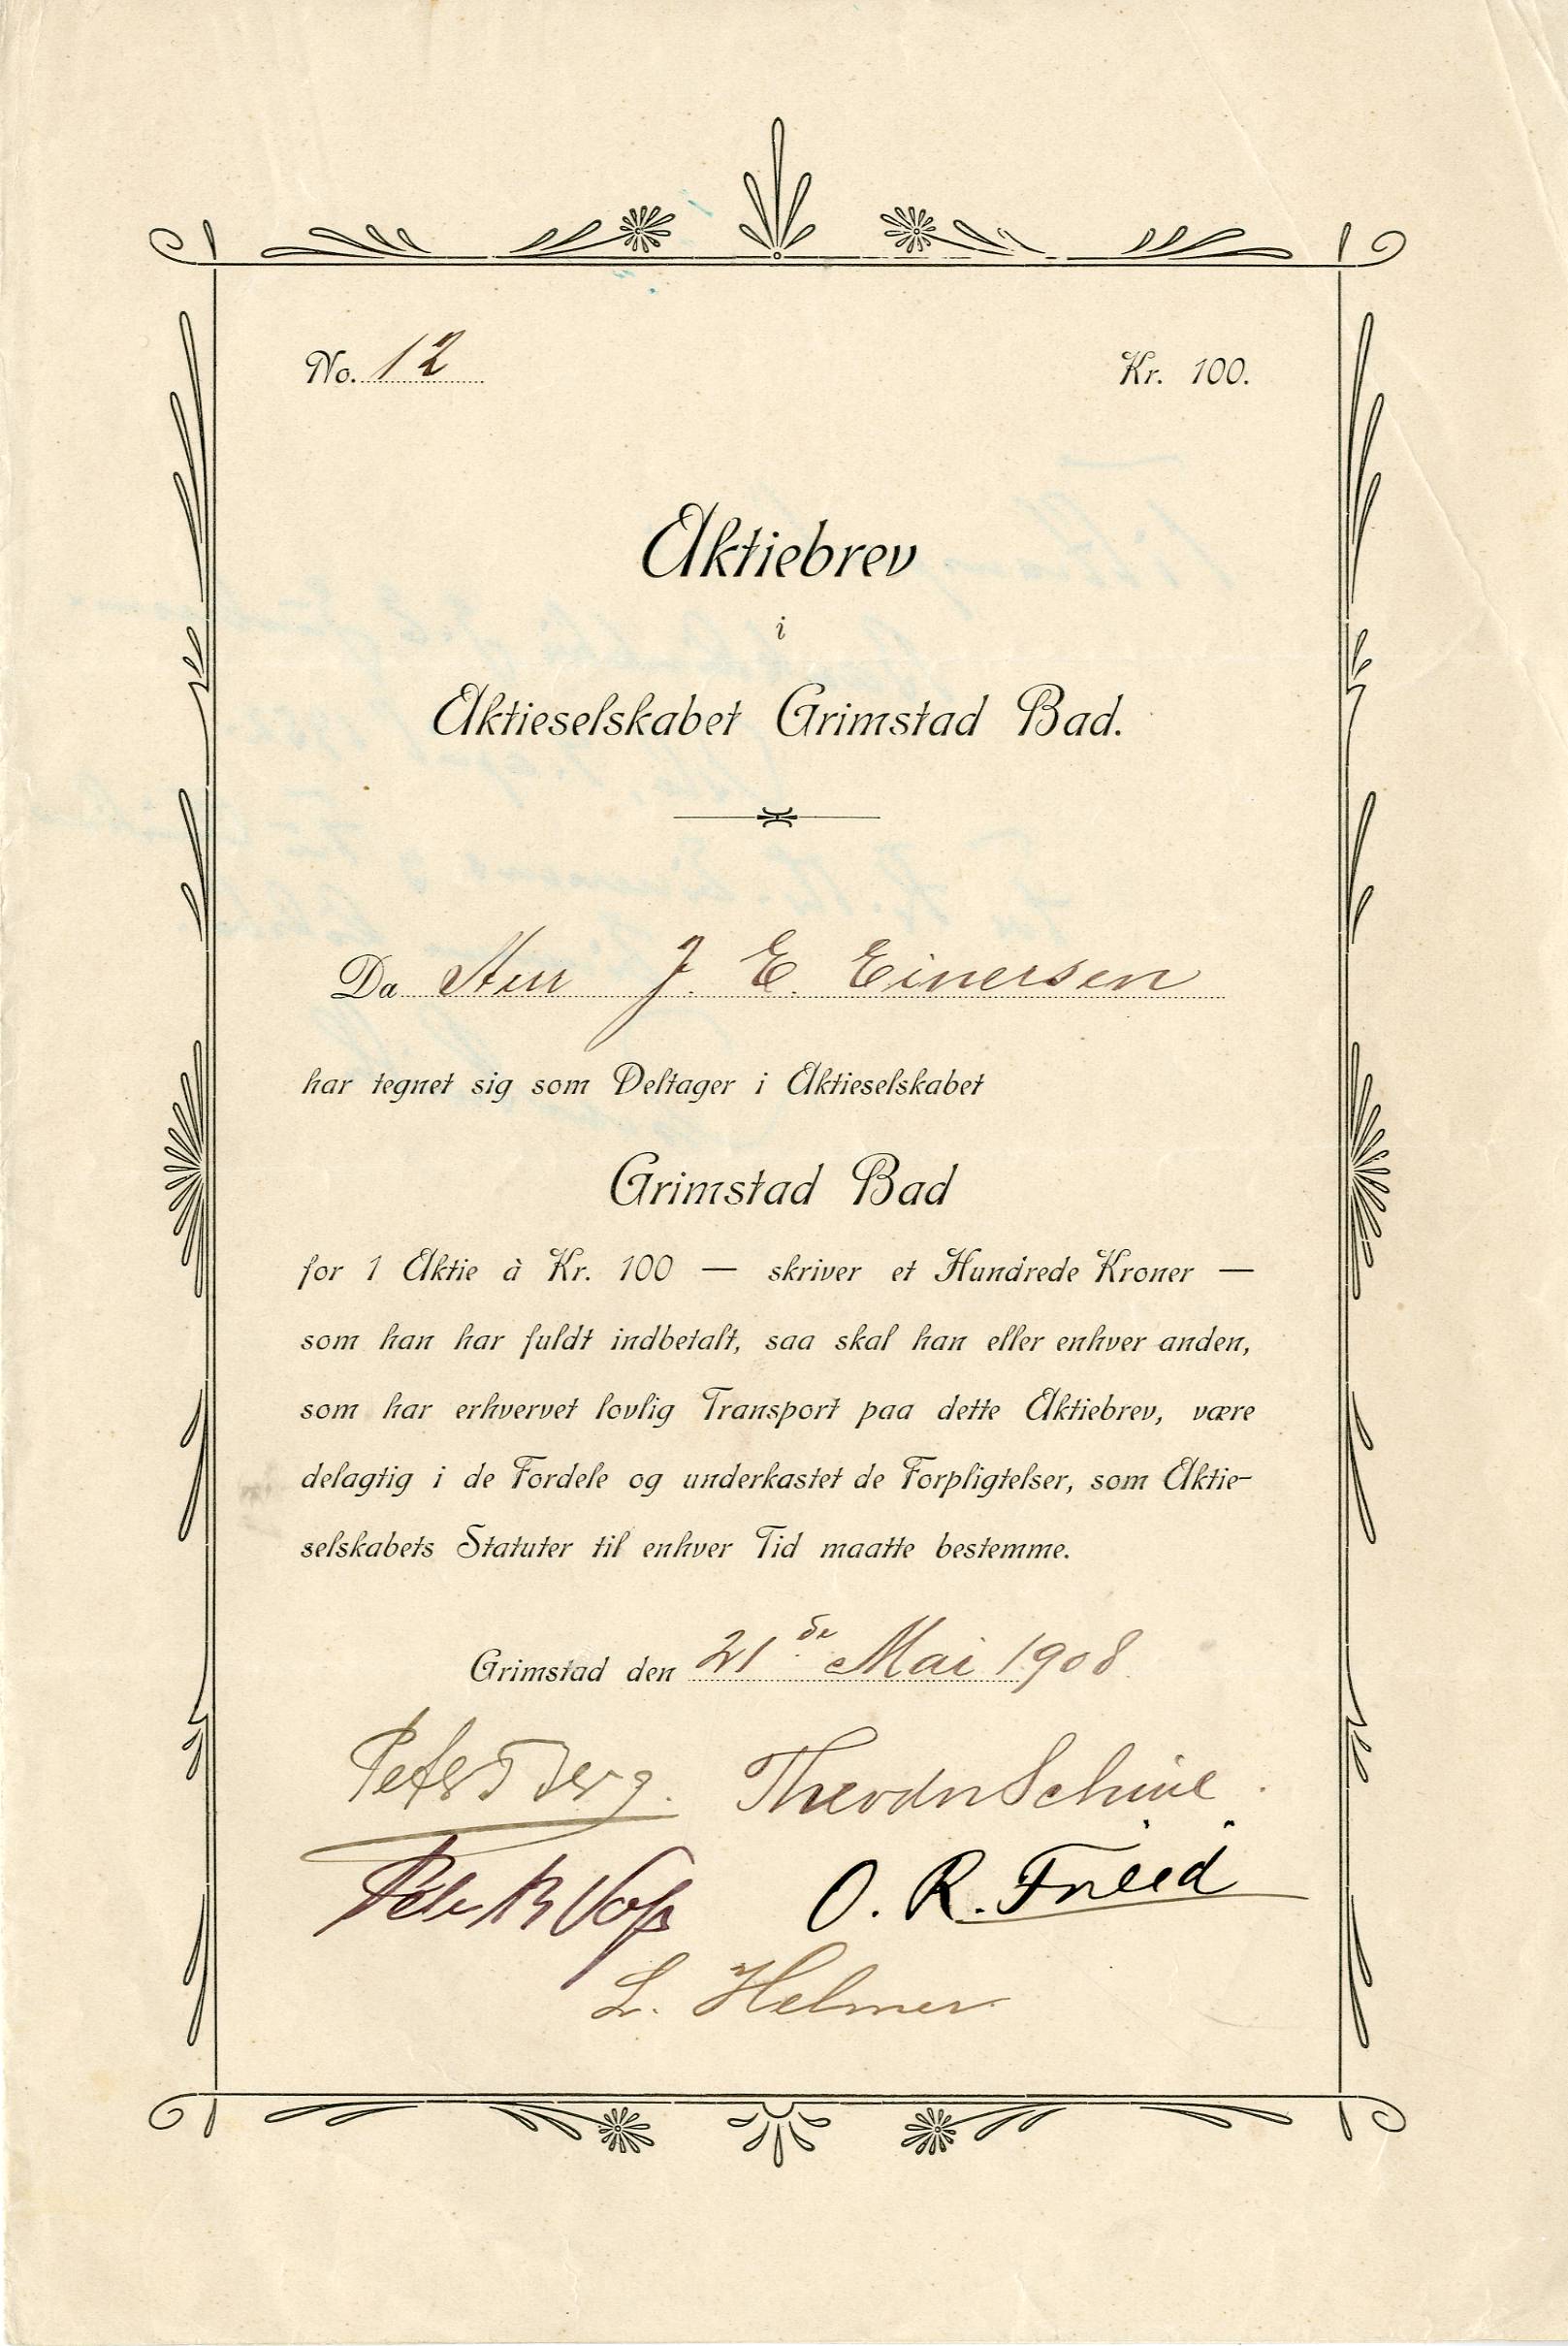 No. 12 Kr. 100.
Aktiebrev
i
Aktieselskabet Grimstad Bad.
Da Herr J. E. Einersen
har tegnet sig som Deltager i Aktieselskabet
Grimstad Bad
for 1 Aktie à Kr. 100 — skriver et Hundrede Kroner —
som han har fuldt indbetalt, saa skal han eller enhver anden,
som har erhvervet lovlig Transport paa dette Aktiebrev, være
delagtig i de Fordele og underkastet de Forpligtelser, som Aktie-
selskabets Statuter til enhver Tid maatte bestemme.
Grimstad den 21de Mai 1908.
Theodor
O. R.
L. Helmer